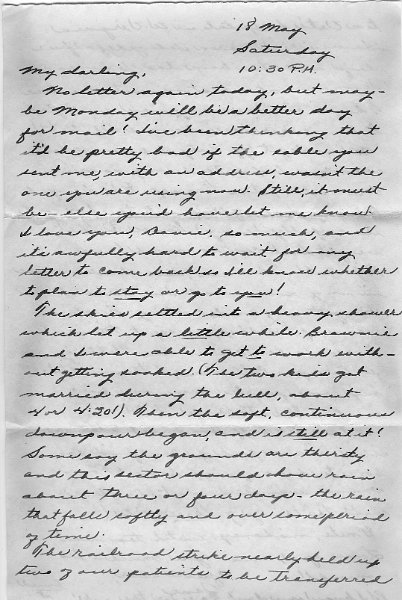 18 May
Saturday
10:30 P.M.
My darling,
No letter again today, but may-
be Monday will be a better day
for mail! I've been thinking that
it'd be pretty bad if the cable you
sent me, with an address, wasn't the
one you are using now. Still, it must
be - else you'd have let me know.
I love you, so much, and
it's awfully hard to wait for my
letter to come back so I'll know whether
to plan to stay or go to you!
The skies settled into a heavy shower
which let up a little while. Brownie
and I were able to get to work with-
out getting soaked. (The two kids got
married during the lull, about
4 or 4:20!). Then the soft, continuous
downpour began, and is still at it!
Some say the grounds are thirsty
and this sector should have rain
about three or four days - the rain
that falls softly and over some period
of time.
The railroad strike nearly held up
two of our patients to be transferred